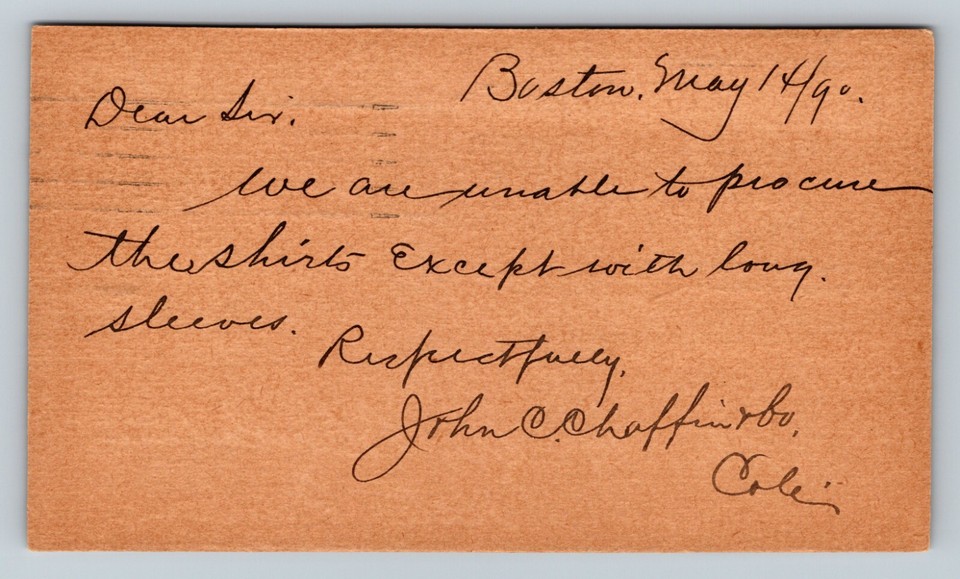 Boston, May 14/90.
Dear Sir.
We are unable to procure
the shirts Except with long
sleeves.
Respectfully,
John C. Chaffin & Co,